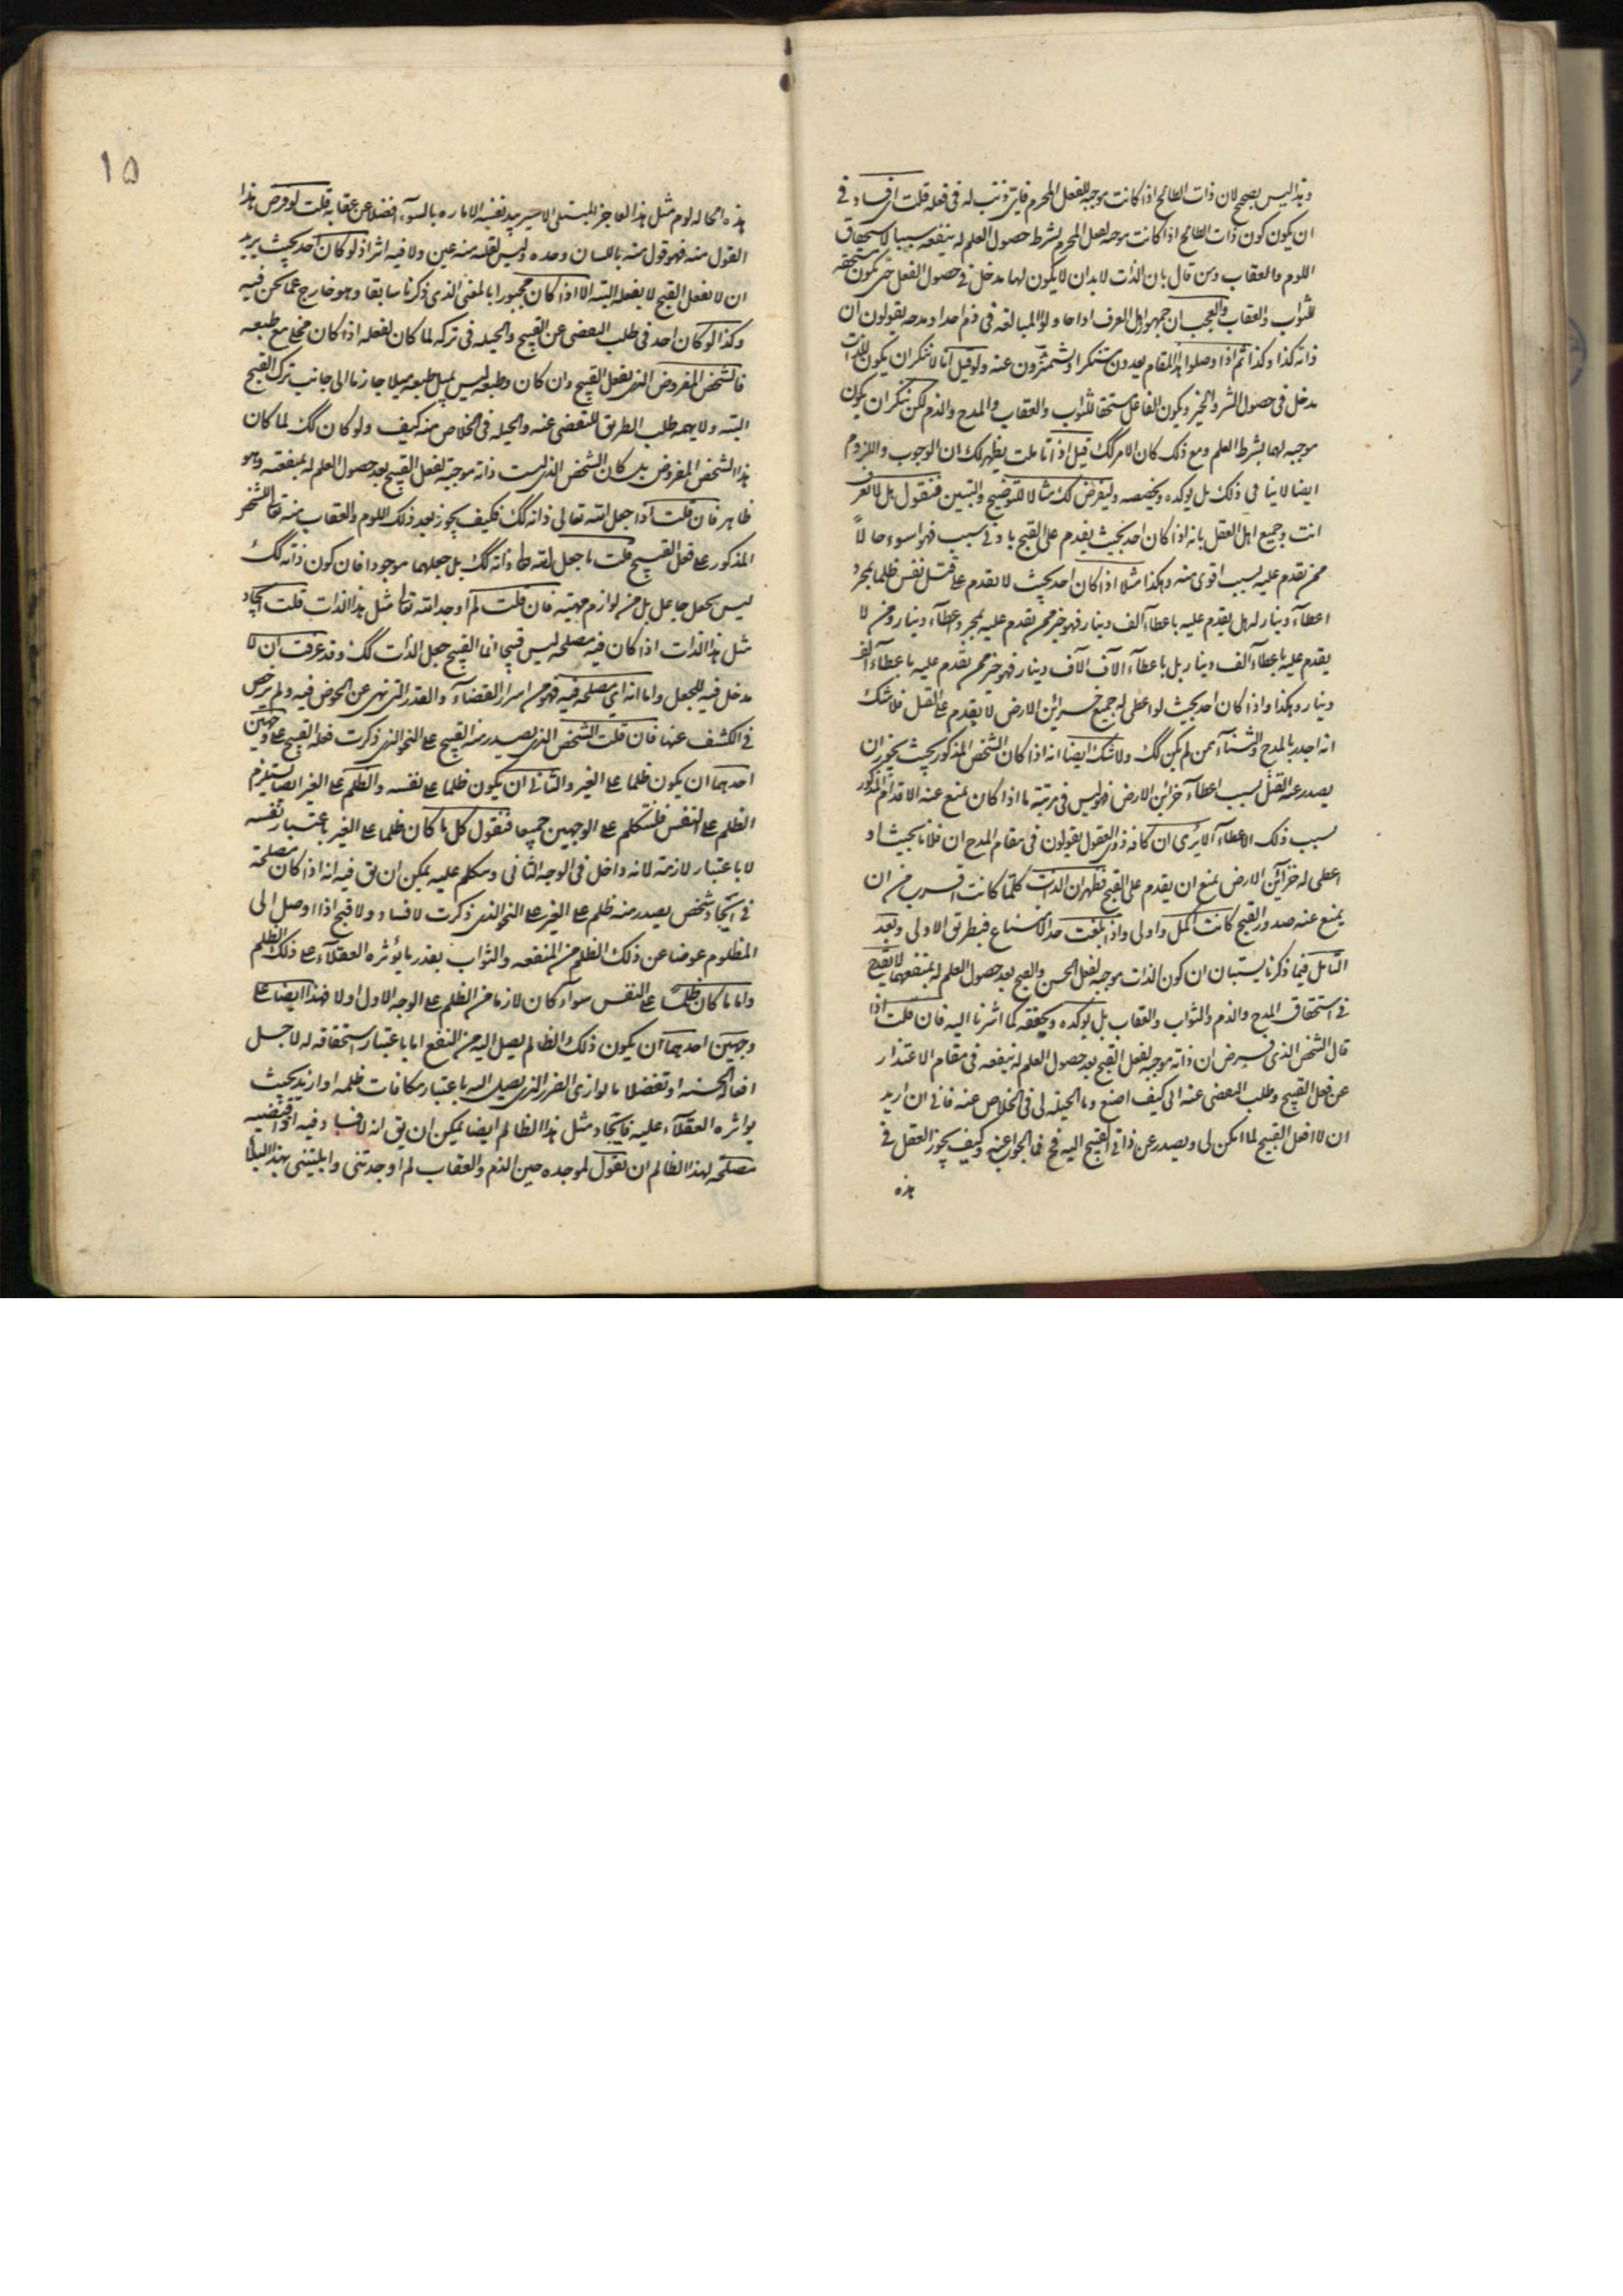 وهذا ليس بصحيح لان ذات الطالح اذا كانت موجبة للفعل المحرم فاي ذنب له في فعله قلت اي فساد في
ان يكون كون ذات الطالح اذا كانت موجبة لفعل المحرم بشرط حصول العلم له بنفعه سببا لاستحقاق
اللوم والعقاب ومن قال بان الذات لابد ان لا يكون لها مدخل في حصول الفعل حتى يكون مستحقه
للثواب والعقاب والعجب ان جمهور اهل العرف اذا حاولوا المبالغه في ذم احد او مدحه يقولون ان
ذاته كذا وكذا ثم اذا وصلوا هذا المقام يعدون مستنكرا ويشمئزون عنه ولو قيل انا لا ننكر ان يكون للذات
مدخل في حصول الشر والخير ويكون الفاعل مستحقا للثواب والعقاب والمدح والذم لكن ننكر ان يكون
موجبه لهما بشرط العلم ومع ذلك كان الامر كك قيل اذا تاملت يظهر لك ان الوجوب واللزوم
ايضا لا ينافي ذلك بل يوكده ويخصصه وليفرض لك مثالا للتوضيح والتبيين فنقول بل لا تعرف
انت وجميع اهل العقل بانه اذا كان احد بحيث يقدم على القبيح بادنى سبب فهو اسوء حالاً
ممن يقدم عليه بسبب اقوى منه وهكذا مثلا اذا كان احد بحيث لا يقدم على قتل نفس ظلما بمجرد
اعطآء دينار له بل يقدم عليه باعطآء الف دينار فهو خير ممن يقدم عليه بمجرد اعطآء دينار ومن لا
يقدم عليه باعطآء الف دينار بل باعطآء الآف الآف دينار فهو خير ممن يقدم عليه باعطآء الف
دينار وهكذا واذا كان احد بحيث لو اعطى له جميع خزائن الارض لا يقدم على القتل فلا شك
انه اجدر بالمدح والثنآء ممن لم يكن كك ولا شك ايضا انه اذا كان الشخص المذكور بحيث يجوز ان
يصدر عنه القتل بسبب اعطآء خزائن الارض فهو ليس في مرتبة ما اذا كان يمتنع عنه الاقدام المذكور
بسبب ذلك الاعطاء الا يرى ان كافه ذوي العقول يقولون في مقام المدح ان فلانا بحيث لو
اعطى له خزآئن الارض يمتنع ان يقدم على القبيح فظهر ان الذات كلما كانت اقرب من ان
يمتنع عنه صدور القبيح كانت اكمل واولى واذا بلغت حد الامتناع فبطريق الاولى وبعد
التامل فيما ذكرنا يستبان ان كون الذات موجبة لفعل الحسن والقبيح بعد حصول العلم له بمنفعتهما لا يقدح
في استحقاق المدح والذم والثواب والعقاب بل يوكده ويحققه كما اشرنا اليه فان قلت اذا
قال الشخص الذي فرض ان ذاته موجبة لفعل القبيح بعد حصول العلم له بنفعه في مقام الاعتذار
عن فعل القبيح وطلب التفصي عنه الى كيف اصنع وما الحيله لي في الخلاص عنه فاني ان اريد
ان لا افعل القبيح لما امكن لي ويصدر عن ذاتي القبيح البته فح فما الجواب عنه وكيف يجوز العقل في
هذه
١٥
هذه الحاله لوم مثل هذا العاجز المبتلى الاسير بيد نفسه الاماره بالسوء فضلا عن عقابه قلت لو فرض هذا
القول منه فهو قول منه باللسان وحده وليس لقلبه منه عين ولا فيه اثر اذ لو كان احد بحيث يريد
ان لا يفعل القبيح لا يفعله البته الا اذا كان مجبورا بالمعنى الذي ذكرنا سابقا وهو خارج عما نحن فيه
وكذا لو كان احد في طلب التفصي عن القبيح والحيله في تركه لما كان يفعله اذا كان مخلى مع طبعه
فالشخص المفروض الذي يفعل القبيح وان كان وطبعه ليس يميل طبعه ميلا جازما الى جانب ترك القبيح
البته ولا يهمه طلب الطريق للتفصي عنه والحيله في الخلاص منه كيف ولو كان كك لما كان
هذا الشخص المفروض بل كان الشخص الذي ليست ذاته موجبة لفعل القبيح بعد حصول العلم له بمنفعته وهو
ظاهر فان قلت اذا جعل الله تعالى ذاته كك فكيف يجوز بعد ذلك اللوم والعقاب منه تعالى للشخص
المذكور على فعل القبيح قلت ما جعل الله تعالى ذاته كك بل جعلهما موجودا فان كون ذاته كك
ليس بجعل جاعل بل من لوازم مهيته فان قلت لم اوجد الله تعالى مثل هذا الذات قلت ايجاد
مثل هذا الذات اذا كان فيه مصلحه ليس قبيحا انما القبيح جعل الذات كك وقد عرفت ان لا
مدخل فيه للجعل واما انه اي مصلحه فيه فهو من اسرار القضآء والقدر التي نهى عن الخوض فيه ولم يرخص
في الكشف عنها فان قلت الشخص الذي يصدر منه القبيح على النحو الذي ذكرت فعله القبيح على وجهين
احدهما ان يكون ظلما على الغير والثاني ان يكون ظلما على نفسه والظلم على الغير ايضا يستلزم
الظلم على النفس فلنتكلم على الوجهين جميعا فنقول كل ما كان ظلما على الغير باعتبار نفسه
لا باعتبار لازمه لانه داخل في الوجه الثاني وسنكلم عليه يمكن ان يق فيه انه اذا كان مصلحة
في ايجاد شخص يصدر منه ظلم على الغير على النحو الذي ذكرت لا فساد ولا قبح اذا اوصل الى
المظلوم عوضا عن ذلك الظلم من المنفعه والثواب بقدر ما يؤثره العقلآء على ذلك الظلم
واما ما كان ظلما على النفس سوآء كان لازما من الظلم على الوجه الاول اولا فهذا ايضا على
وجهين احدهما ان يكون ذلك الظالم يصل اليه من النفع اما باعتبار استحقاقه له لاجل
افعاله الحسنه او تفضلا ما يوازي الضرر الذي يصل اليه باعتبار مكافات ظلمه او ازيد بحيث
يؤثره العقلآء عليه فايجاد مثل هذا الظالم ايضا يمكن ان يق انه لا فساد فيه اذا اقتضيه
مصلحة لهذا الظالم ان يقول لموجده حين الذم والعقاب لم اوجدتني وابليتني بهذا البلآء